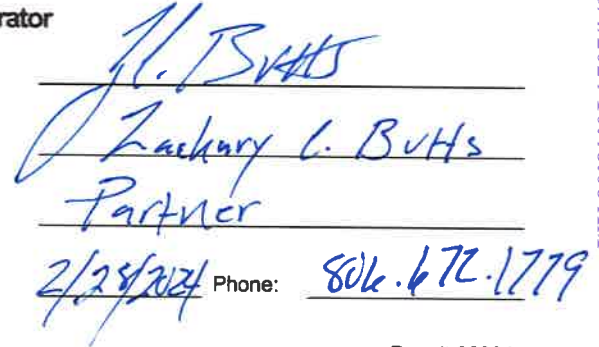 rator
Z. C. Butts
Zachary C. Butts
Partner
2/28/2024 Phone: 806.672.1779